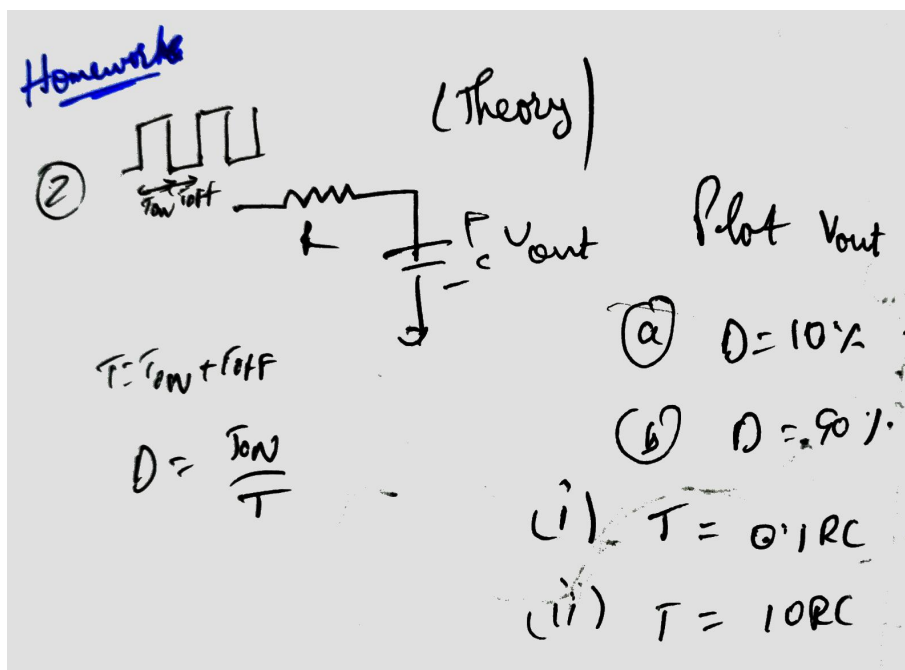 Homeworks
(Theory)
②
TON TOFF
R
+
C
-
Vout
Plot Vout
T = TON + TOFF
D = TON / T
ⓐ D = 10%
ⓑ D = 90%.
(i) T = 0.1RC
(ii) T = 10RC